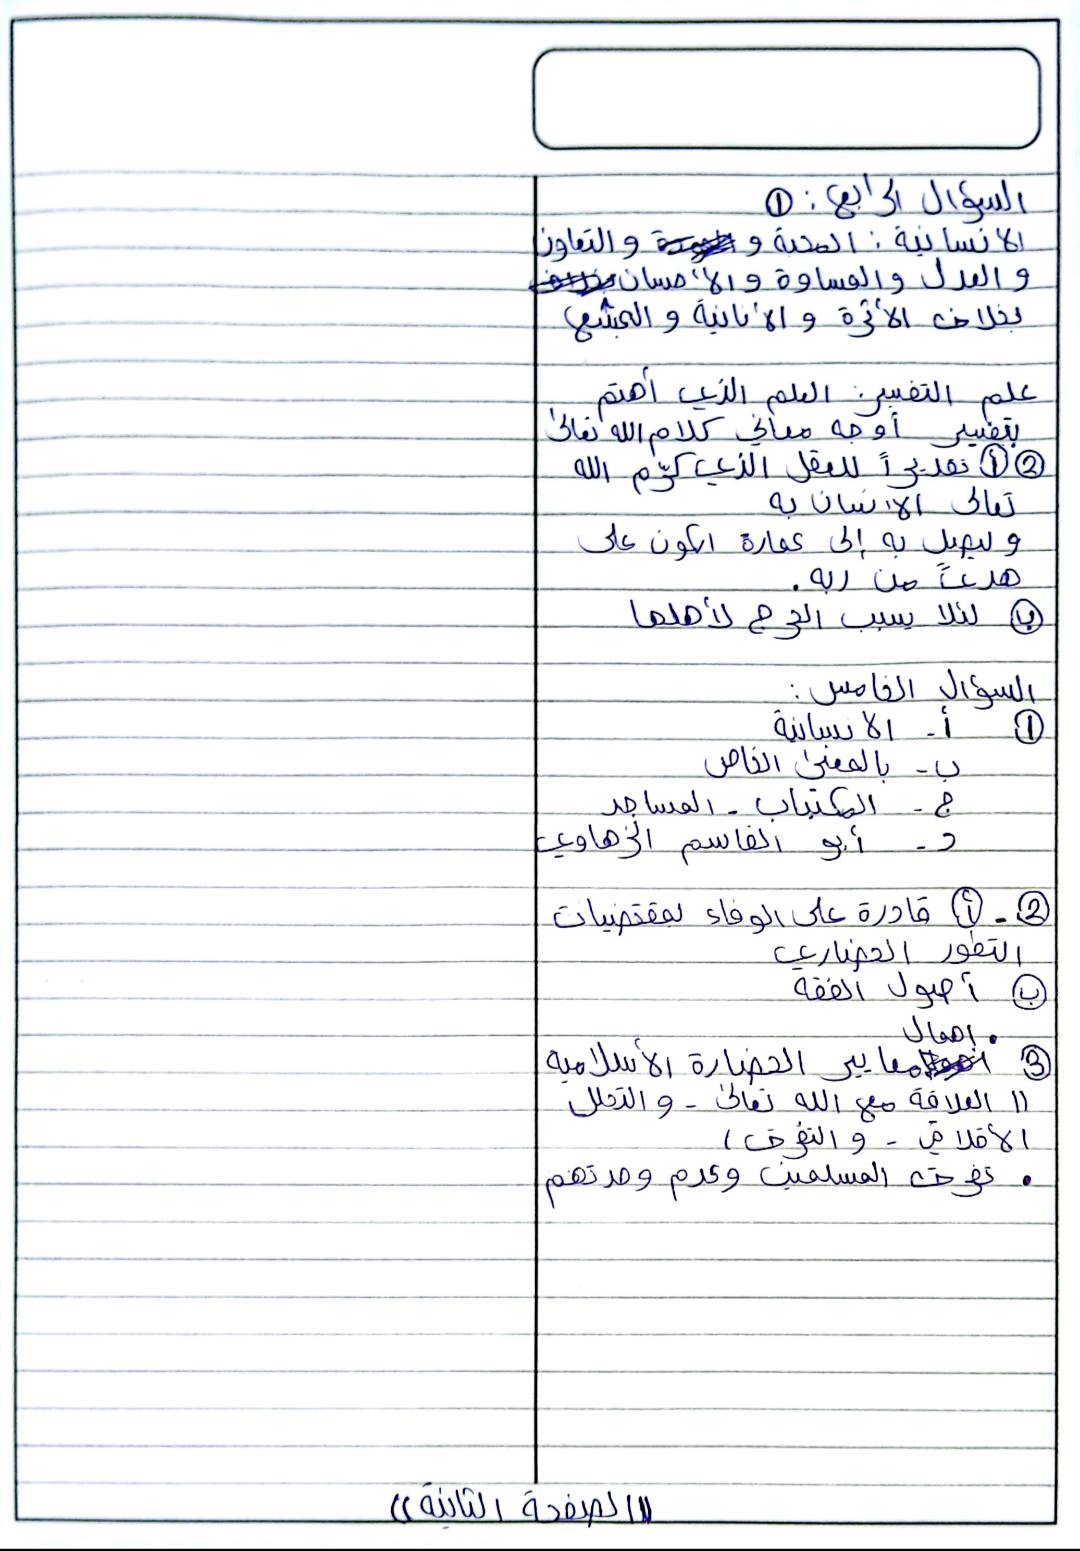 السؤال الرابع : ①
الانسانية : المحبة و والتعاون
و العدل والمساوة والاحسان
بخلاف الأثرة و الأنانية و الجشع
علم التفسير : العلم الذي أهتم
بتفسير أوجه معاني كلام الله تعالى
② أ تقديراً للعقل الذي كرّم الله
تعالى الانسان به
و ليصل به إلى عمارة الكون على
هدىً من ربه .
ب لئلا يسبب الحرج لأهلها
السؤال الخامس :
① أ - الانسانية
ب - بالمعنى الخاص
ج - الكتاب - المساجد
د - أبو القاسم الزهاوي
② - أ قادرة على الوفاء لمقتضيات
التطور الحضاري
ب أصول الفقه
③ • اهمال معايير الحضارة الأسلامية
(( العلاقة مع الله تعالى - و التحلل
الأخلاقي - و التفرق )
• تفرق المسلمين وعدم وحدتهم
((الصفحة الثانية))